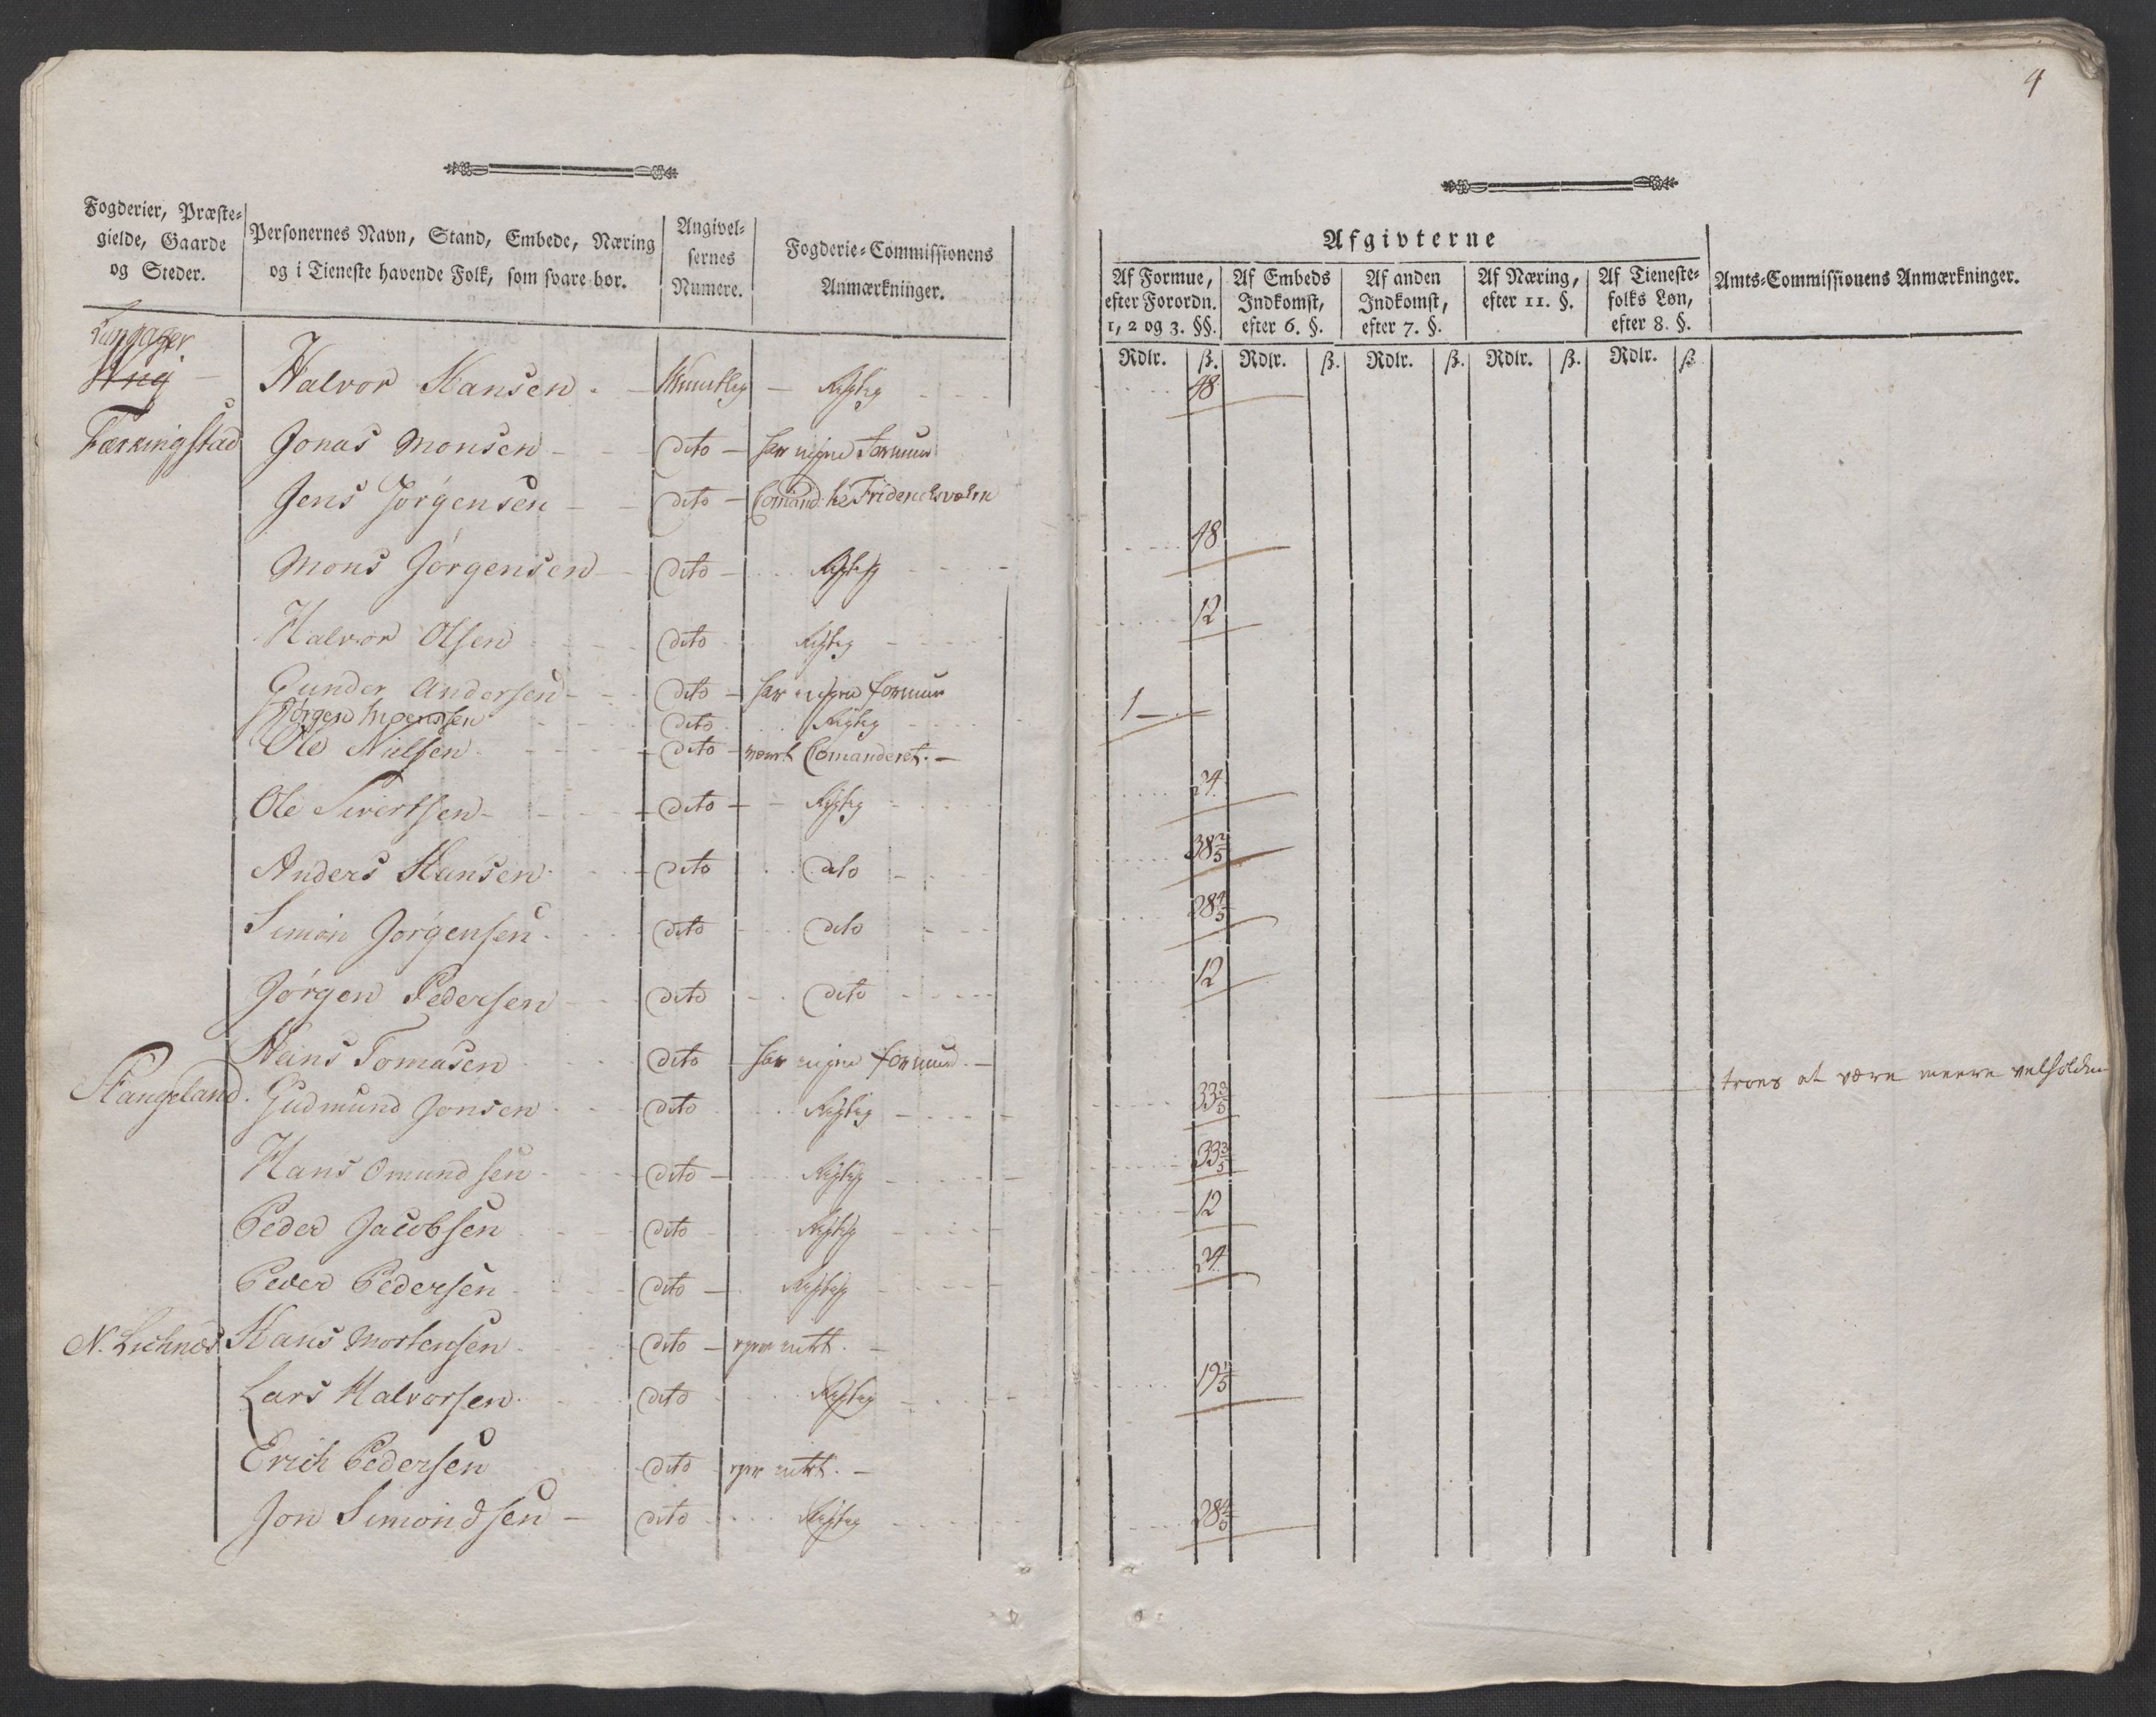 4
Fogderier, Præste-
gielde, Gaarde
og Steder.
Personernes Navn, Stand, Embede, Næring
og i Tieneste havende Folk, som svare bør.
Angivel-
sernes
Numere.
Fogderie-Commissionens
Anmærkninger.
Afgivterne
Af Formue,
efter Forordn.
1, 2 og 3. §§.
Af Embeds
Indkomst,
efter 6. §.
Af anden
Indkomst,
efter 7. §.
Af Næring,
efter 11. §.
Af Tieneste-
folks Løn,
efter 8. §.
Amts-Commissionens Anmærkninger.
Rdlr. ß. Rdlr. ß. Rdlr. ß. Rdlr. ß. Rdlr. ß
Langager
Halvor Hansen - Mundtlig - Rigtig 48
Færkingstad Jonas Monsen - dito - har ingen Formue
Jens Jørgensen - dito -
Mons Jørgensen - dito - Rigtig 48
Halvor Olsen dito Rigtig 12
Gunder Andersen - dito - har ingen formue
Jørgen Mogenssen dito Rigtig 1 -
Ole Nielsen - dito - Comanderet. -
Ole Sivertsen - dito - Rigtig 24
Anders Hansen dito dito 38 2/5
Simon Jørgensen dito dito 28 4/5
Jørgen Pedersen - dito dito 12
Hans Tomasen dito har ingen formue. -
Stangeland. Gudmund Jonsen dito Rigtig 33 3/5 troes at være meere velholden
Hans Omundsen dito - Rigtig 33 3/5
Peder Jacobsen dito Rigtig 12
Peder Pedersen dito - Rigtig 24
Hans Mortensen dito - eyer intet. -
Lars Halvorsen dito Rigtig 19 1/5
Erich Pedersen dito eyer intet. -
Jon Simondsen - dito Rigtig 28 4/5